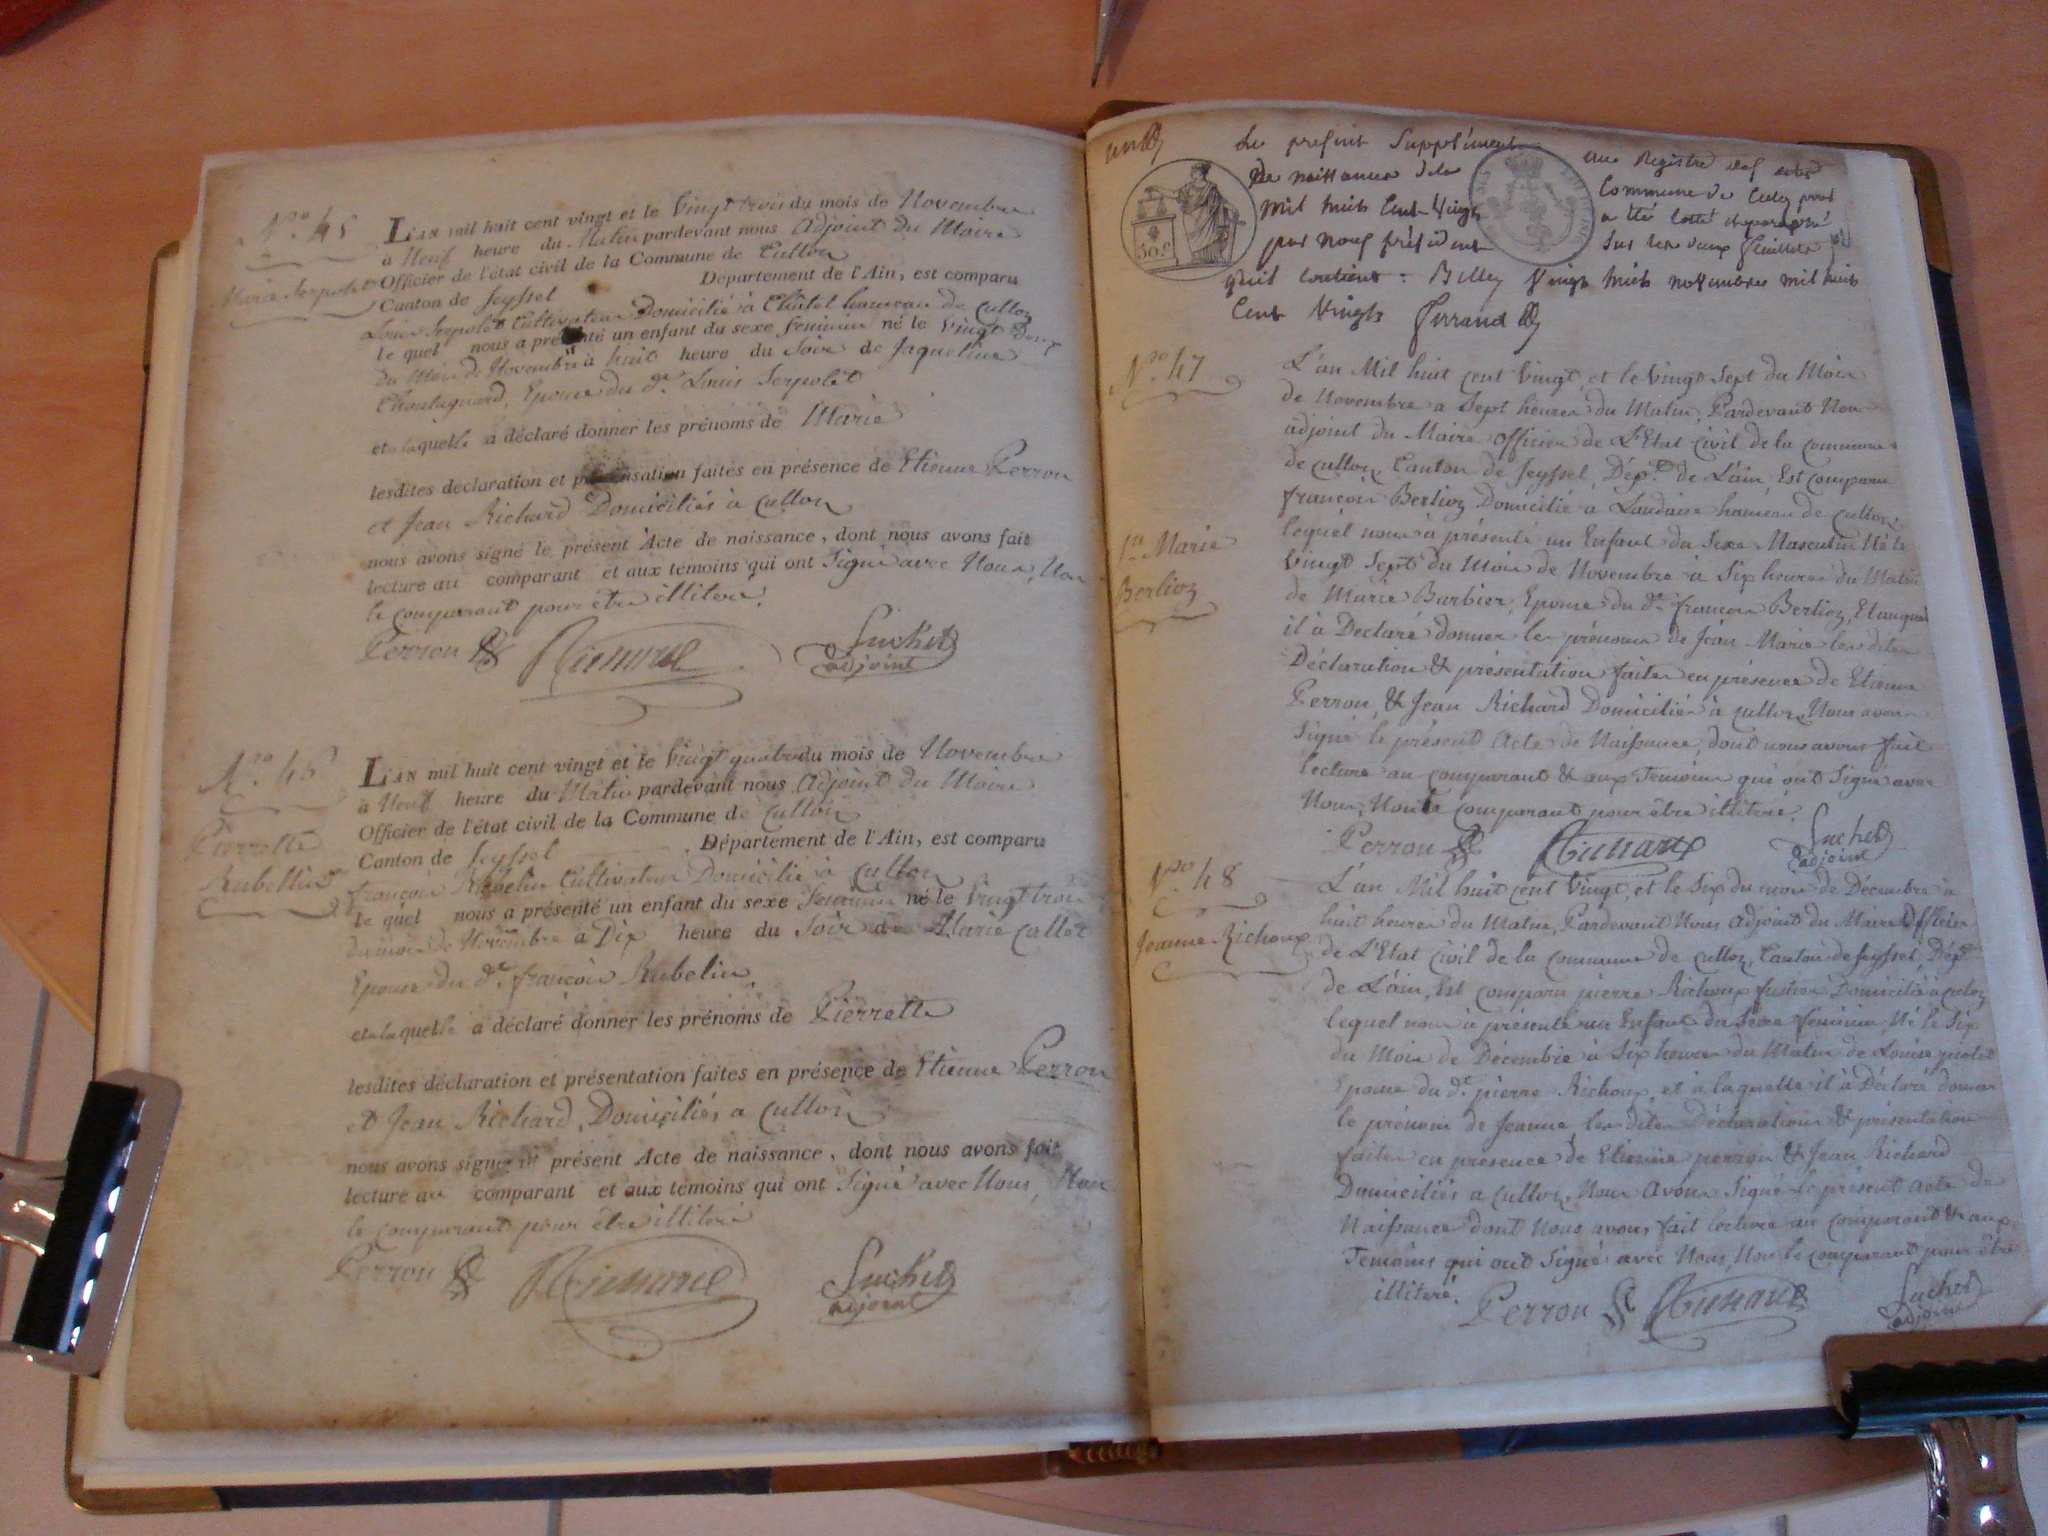 N.º 45
Marie Serpolet
L'AN mil huit cent vingt et le vingt trois du mois de Novembre
à Neuf heure du Matin pardevant nous Adjoint du Maire
Officier de l'état civil de la Commune de Culloz
Canton de Seyssel Département de l'Ain, est comparu
Louis Serpolet Cultivateur Domicilié à Châtel hameau de Culloz
le quel nous a présenté un enfant du sexe feminin né le vingt Deux
du Mois de Novembre à huit heure du Soir de Jaqueline
Chontagnard, Epouse du d.t Louis Serpolet
et a laquelle a déclaré donner les prénoms de Marie
lesdites déclaration et présentation faites en présence de Etienne Perron
et Jean Richard Domiciliés à Culloz
nous avons signé le présent Acte de naissance, dont nous avons fait
lecture au comparant et aux témoins qui ont Signé avec Nous, Non
le comparant pour être illiteré.
Perron Richard Suchet
adjoint
N.º 46
Pierrette
Rubellin
L'AN mil huit cent vingt et le vingt quatre du mois de Novembre
à Neuf heure du Matin pardevant nous Adjoint du Maire
Officier de l'état civil de la Commune de Culloz
Canton de Seyssel Département de l'Ain, est comparu
françois Rubelin Cultivateur Domicilié à Culloz
le quel nous a présenté un enfant du sexe feminin né le vingt trois
du mois de Novembre à Dix heure du Soir de Marie Collet
Epouse du d.t françois Rubelin,
et a laquelle a déclaré donner les prénoms de Pierrette
lesdites déclaration et présentation faites en présence de Etienne Perron
et Jean Richard, Domiciliés a Culloz
nous avons signé le présent Acte de naissance, dont nous avons fait
lecture au comparant et aux témoins qui ont Signé avec Nous, Non
le comparant pour être illiteré
Perron Richard Suchet
adjoint
Le present Supplément au Registre des actes
De naissances de la Commune de Culoz pour
mil huit Cent Vingt a été Cotté et paraphé
par nous président sur les deux feuillets
50c
qu'il contient : Belley Vingt huit novembre mil huit
Cent Vingt Ferrand
N.º 47
Jn Marie
Berlioz
L'an Mil huit cent Vingt, et le Vingt Sept du Mois
de Novembre a Sept heures du Matin, Pardevant Nous
adjoint du Maire officier de L'Etat Civil de la commune
de Culloz, Canton de Seyssel, Dép.t de L'ain, Est comparu
françois Berlioz Domicilié à Landaise hameau de Culloz,
lequel nous à présenté un Enfant du Sexe Masculin Né le
Vingt Sept du Mois de Novembre à Six heures du Matin
de Marie Barbier, Epouse du d.t françois Berlioz, Et auquel
il à Declaré donner les prénoms de Jean Marie les dites
Déclaration & présentation faites en présence de Etienne
Perron, & Jean Richard Domiciliés à Culloz, Nous avons
Signé le présent Acte de Naissance, dont nous avons fait
lecture au comparant & aux Temoins qui ont Signé avec
Nous, Non le comparant pour être illiteré.
Perron Richard Suchet
adjoint
N.º 48
Jeanne Richoux
L'an Mil huit cent Vingt, et le Six du mois de Décembre à
huit heures du Matin, Pardevant Nous Adjoint du Maire Officier
de L'Etat Civil de la commune de Culloz, Canton de Seyssel, Dép.t
de L'ain, Est comparu pierre Richoux Domicilié à
lequel nous à présenté un Enfant du Sexe feminin Né le Six
du Mois de Décembre à Six heures du Matin de Louise
Epouse du d.t pierre Richoux, et à laquelle il à Déclaré donner
le prénom de Jeanne les dites Déclaration & présentation
faites en présence de Etienne perron & Jean Richard
Domiciliés a Culloz, Nous avons Signé le présent acte de
Naissance dont Nous avons fait lecture au comparant & aux
Temoins qui ont Signé avec Nous, Non le comparant pour être
illiteré.
Perron Richard Suchet
adjoint